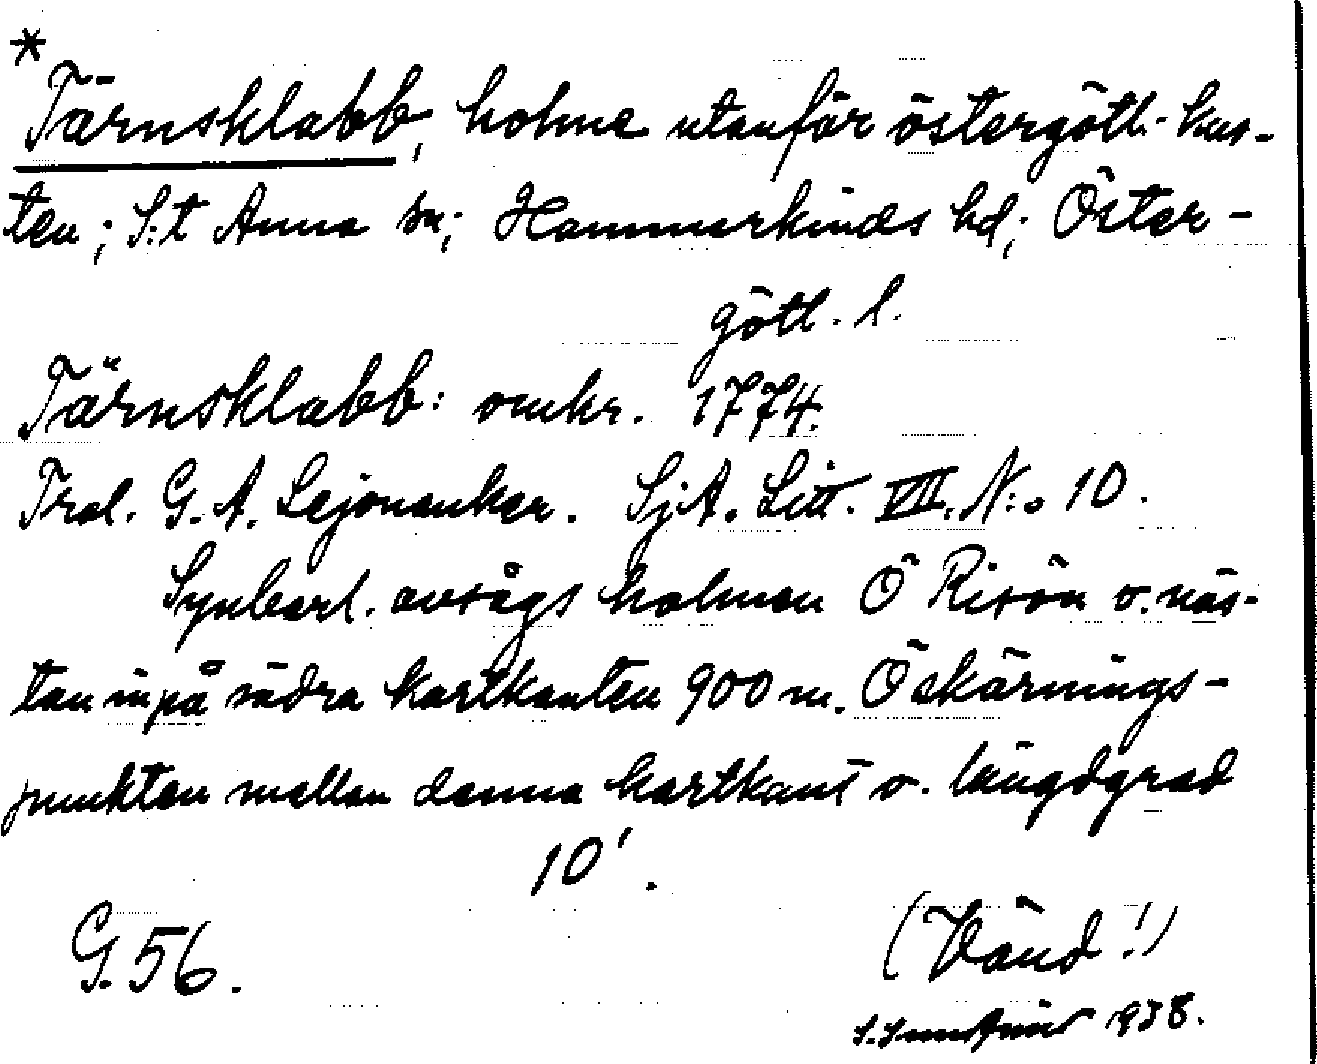 *
Tärnsklabb, holme utanför östergötl. kus-
ten; S:t Anna sn; Hammarkinds hd; Öster-
götl. l.
Tärnsklabb: omkr. 1774.
Tral. G. A. Lejonanker. SjA. Litt. VII. N:o 10.
Synbarl. avsågs holmen Ö Risön o. näs-
tan inpå södra kartkanten 900 m. Ö skärnings-
punkten mellan denna kartkant o. längdgrad
10'.
G. 56.
(Vänd!)
938.